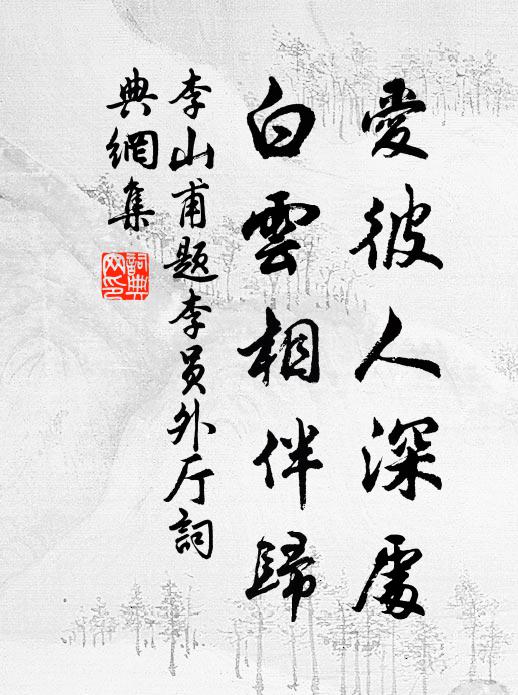 愛彼人深處
白雲相伴歸
李山甫題李員外厅詞
典網集
詞典网印